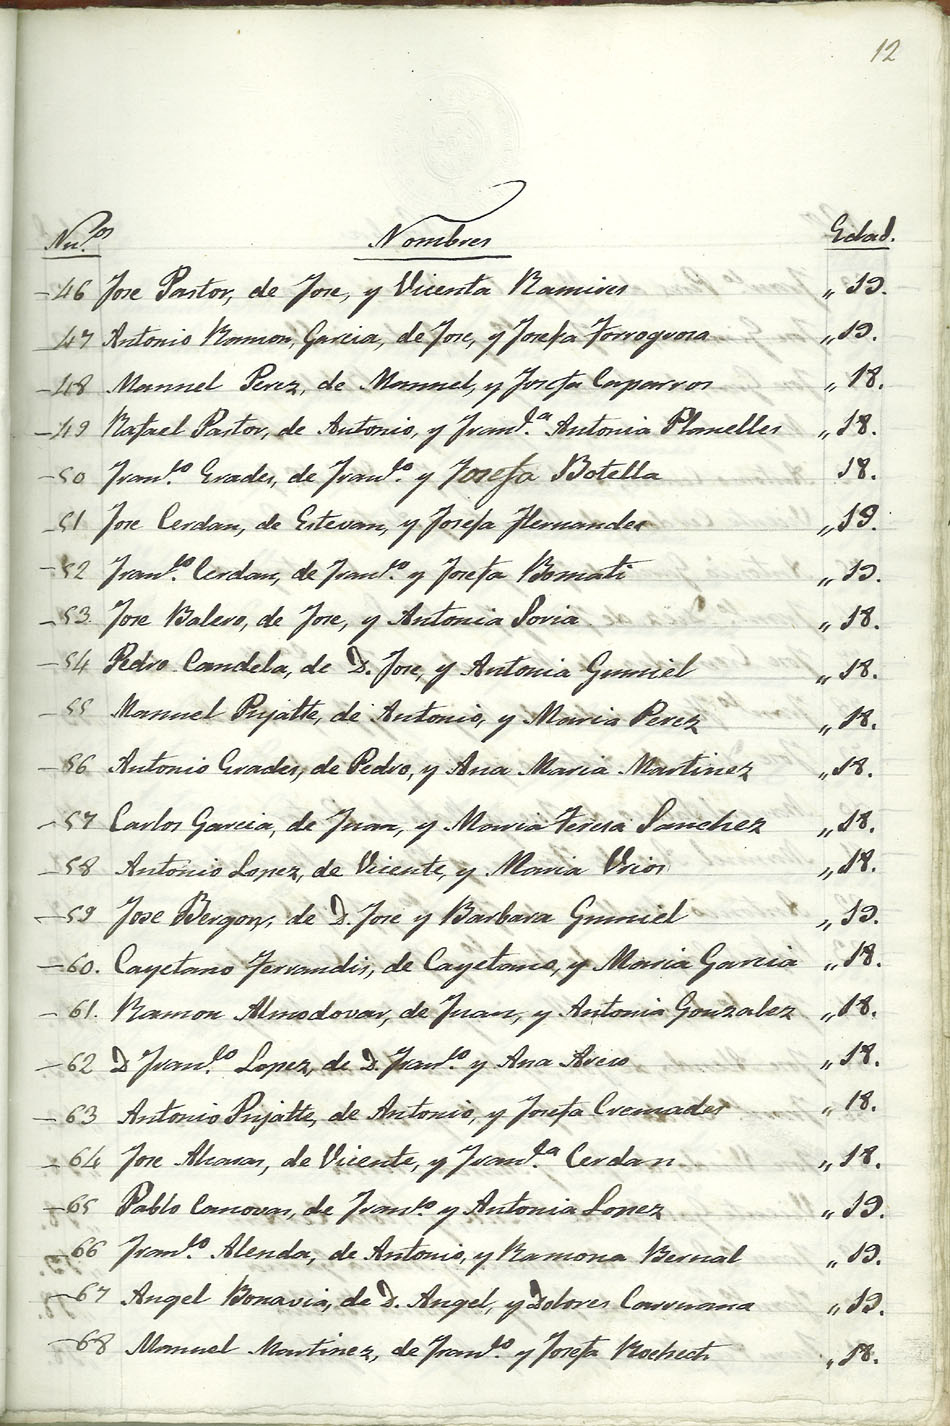 12
Nu.ros Nombres Edad.
46 Jose Pastor, de Jose, y Vicenta Ramires „ 19.
47 Antonio Ramon, Garcia, de Jose, y Josefa Torregrosa „ 19.
48 Manuel Perez, de Manuel, y Josefa Caparros „ 18.
49 Rafael Pastor, de Antonio, y Fran.ca Antonia Planelles „ 18.
50 Fran.co Grades, de Fran.co y Josefa Botella 18.
51 Jose Cerdan, de Estevan, y Josefa Hernandes „ 19.
52 Fran.co Cerdan, de Fran.co y Josefa Bomati „ 19.
53. Jose Balero, de Jose, y Antonia Soria „ 18.
54 Pedro Candela, de D. Jose, y Antonia Gumiel „ 18.
55 Manuel Pujalte, de Antonio, y Maria Perez „ 18.
56 Antonio Grades, de Pedro, y Ana Maria Martinez „ 18.
57 Carlos Garcia, de Juan, y Maria Teresa Sanchez „ 18.
58 Antonio Lopez, de Vicente, y Maria Vrios „ 18.
59 Jose Bergon, de D. Jose y Barbara Gumiel „ 19.
60. Cayetano Ferrandis, de Cayetano, y Maria Garcia „ 18.
61. Ramon Almodovar, de Juan, y Antonia Gonzalez „ 18.
62 D Fran.co Lopez, de D. Fran.co y Ana „ 18.
63 Antonio Pujalte, de Antonio, y Josefa Cremades „ 18.
64 Jose, de Vicente, y Fran.ca Cerdan „ 18.
65 Pablo Canovas, de Fran.co y Antonia Lopez „ 19.
66 Fran.co Alenda, de Antonio, y Ramona Bernal „ 19.
67 Angel Bonavia, de D. Angel, y Dolores Carruana „ 19.
68 Manuel Martinez, de Fran.co y Josefa „ 18.